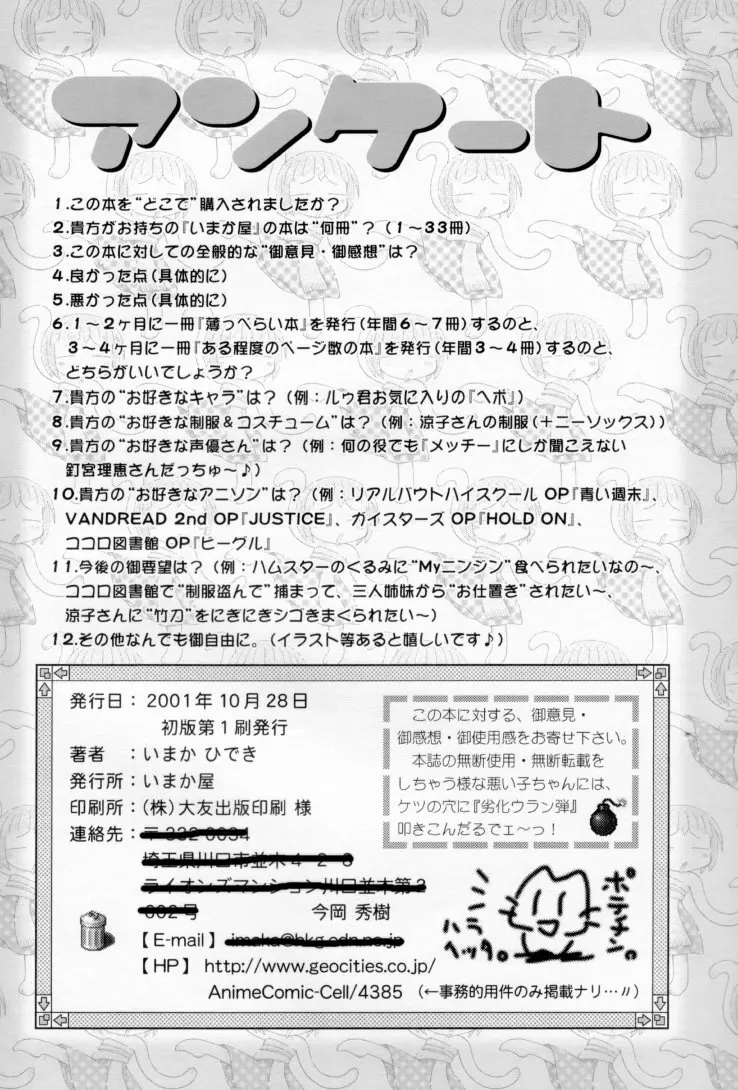 アンケート
1.この本を“どこで”購入されましたか？
2.貴方がお持ちの『いまか屋』の本は“何冊”？（1～33冊）
3.この本に対しての全般的な“御意見・御感想”は？
4.良かった点（具体的に）
5.悪かった点（具体的に）
6.1～2ヶ月に一冊『薄っぺらい本』を発行（年間6～7冊）するのと、
3～4ヶ月に一冊『ある程度のページ数の本』を発行（年間3～4冊）するのと、
どちらがいいでしょうか？
7.貴方の“お好きなキャラ”は？（例：ルゥ君お気に入りの『ヘポ』）
8.貴方の“お好きな制服＆コスチューム”は？（例：涼子さんの制服（＋ニーソックス））
9.貴方の“お好きな声優さん”は？（例：何の役でも『メッチー』にしか聞こえない
釘宮理恵さんだっちゅ～♪）
10.貴方の“お好きなアニソン”は？（例：リアルバウトハイスクール OP『青い週末』、
VANDREAD 2nd OP『JUSTICE』、ガイスターズ OP『HOLD ON』、
ココロ図書館 OP『ビーグル』
11.今後の御要望は？（例：ハムスターのくるみに“Myニンジン”食べられたいなの～、
ココロ図書館で“制服盗んで”捕まって、三人姉妹から“お仕置き”されたい～、
涼子さんに“竹刀”をにぎにぎシゴきまくられたい～）
12.その他なんでも御自由に。（イラスト等あると嬉しいです♪）
発行日：2001年10月28日
初版第1刷発行
著者：いまか ひでき
発行所：いまか屋
印刷所：（株）大友出版印刷 様
連絡先：
今岡 秀樹
【E-mail】
【HP】 http://www.geocities.co.jp/
AnimeComic-Cell/4385 （←事務的用件のみ掲載ナリ…〃）
この本に対する、御意見・
御感想・御使用感をお寄せ下さい。
本誌の無断使用・無断転載を
しちゃう様な悪い子ちゃんには、
ケツの穴に『劣化ウラン弾』
叩きこんだるでェ～っ！
ポテチン。
ハラヘッタ。